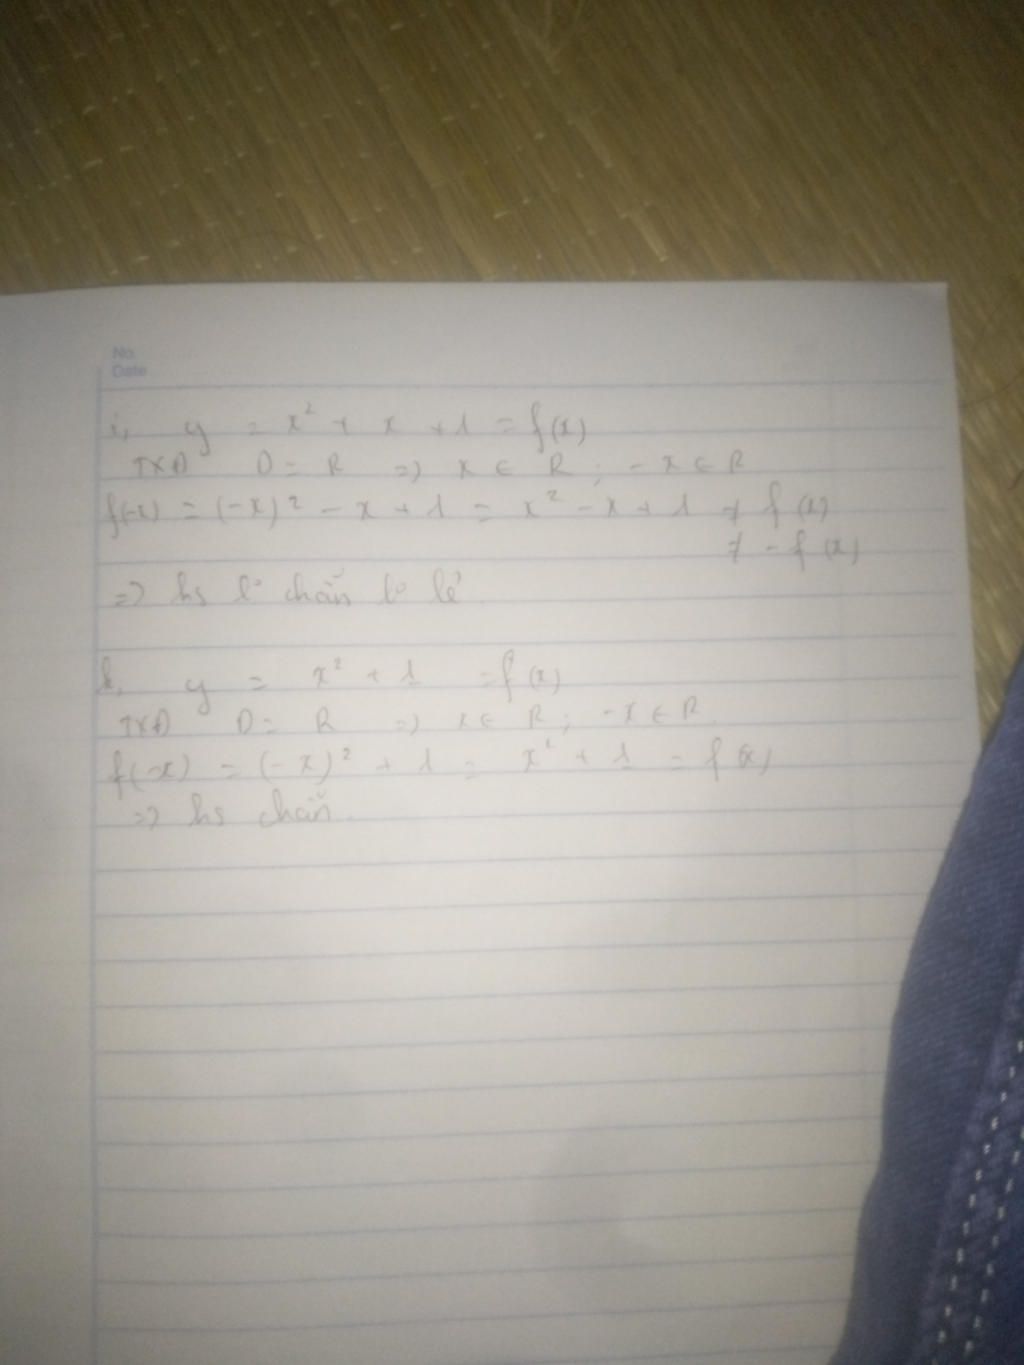 No.
Date
i, y = x² + x + 1 = f(x)
TXĐ D = R => x ∈ R ; -x ∈ R
f(-x) = (-x)² - x + 1 = x² - x + 1 ≠ f(x)
≠ -f(x)
=> hs k° chẵn k° lẻ
k, y = x² + 1 = f(x)
TXĐ D = R => x ∈ R ; -x ∈ R
f(-x) = (-x)² + 1 = x² + 1 = f(x)
=> hs chẵn.